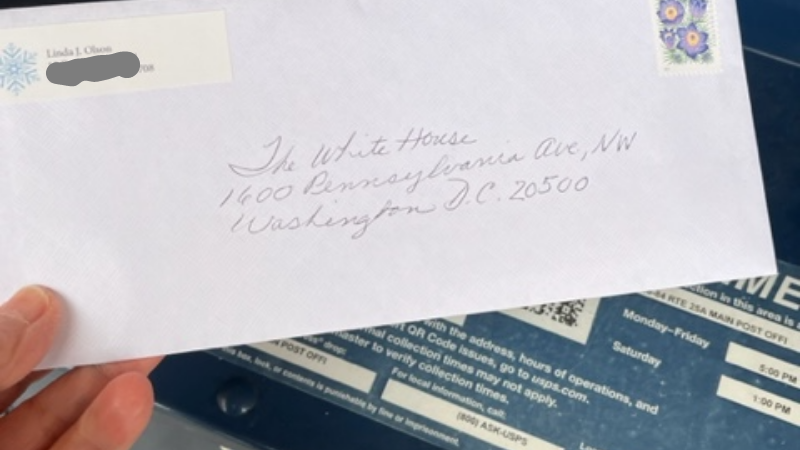 Linda J. Olson
708
The White House
1600 Pennsylvania Ave, NW
Washington D.C. 20500
RTE 25A MAIN POST OFFI
ction in this area is
Monday–Friday
5:00 PM
Saturday
1:00 PM
with the address, hours of operations, and
QR Code issues, go to usps.com.
mal collection times may not apply.
master to verify collection times.
POST OFFI
drop:
this box, lock, or contents is punishable by fine or imprisonment.
For local information, call:
(800) ASK-USPS